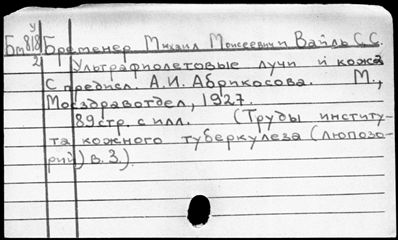 У
Бт818 Бременер Михаил Моисеевич и Вайль С.С.
2 Ультрафиолетовые лучи и кожа
с предисл. А.И. Абрикосова. М.,
Мосздравотдел, 1927.
89 стр. с илл. (Труды институ-
та кожного туберкулеза (люпозо-
рий) в. 3.)